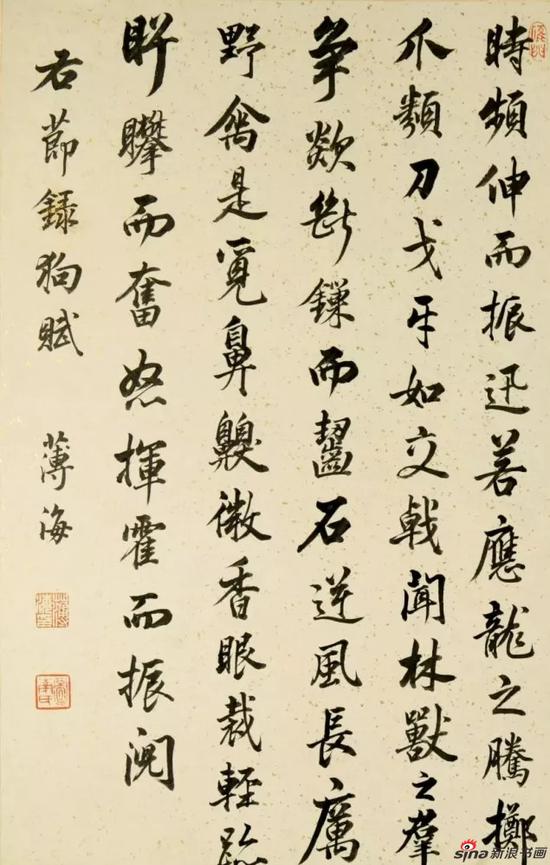 時頻伸而振迅若應龍之騰擲
爪類刀戈牙如交戟聞林獸之群
爭欻斷鏁而齧石逆風長厲
野禽是覓鼻齅微香眼裁輕跡
眄矕而奮怒揮霍而振
右節錄狗賦
薄海
sina新浪书画